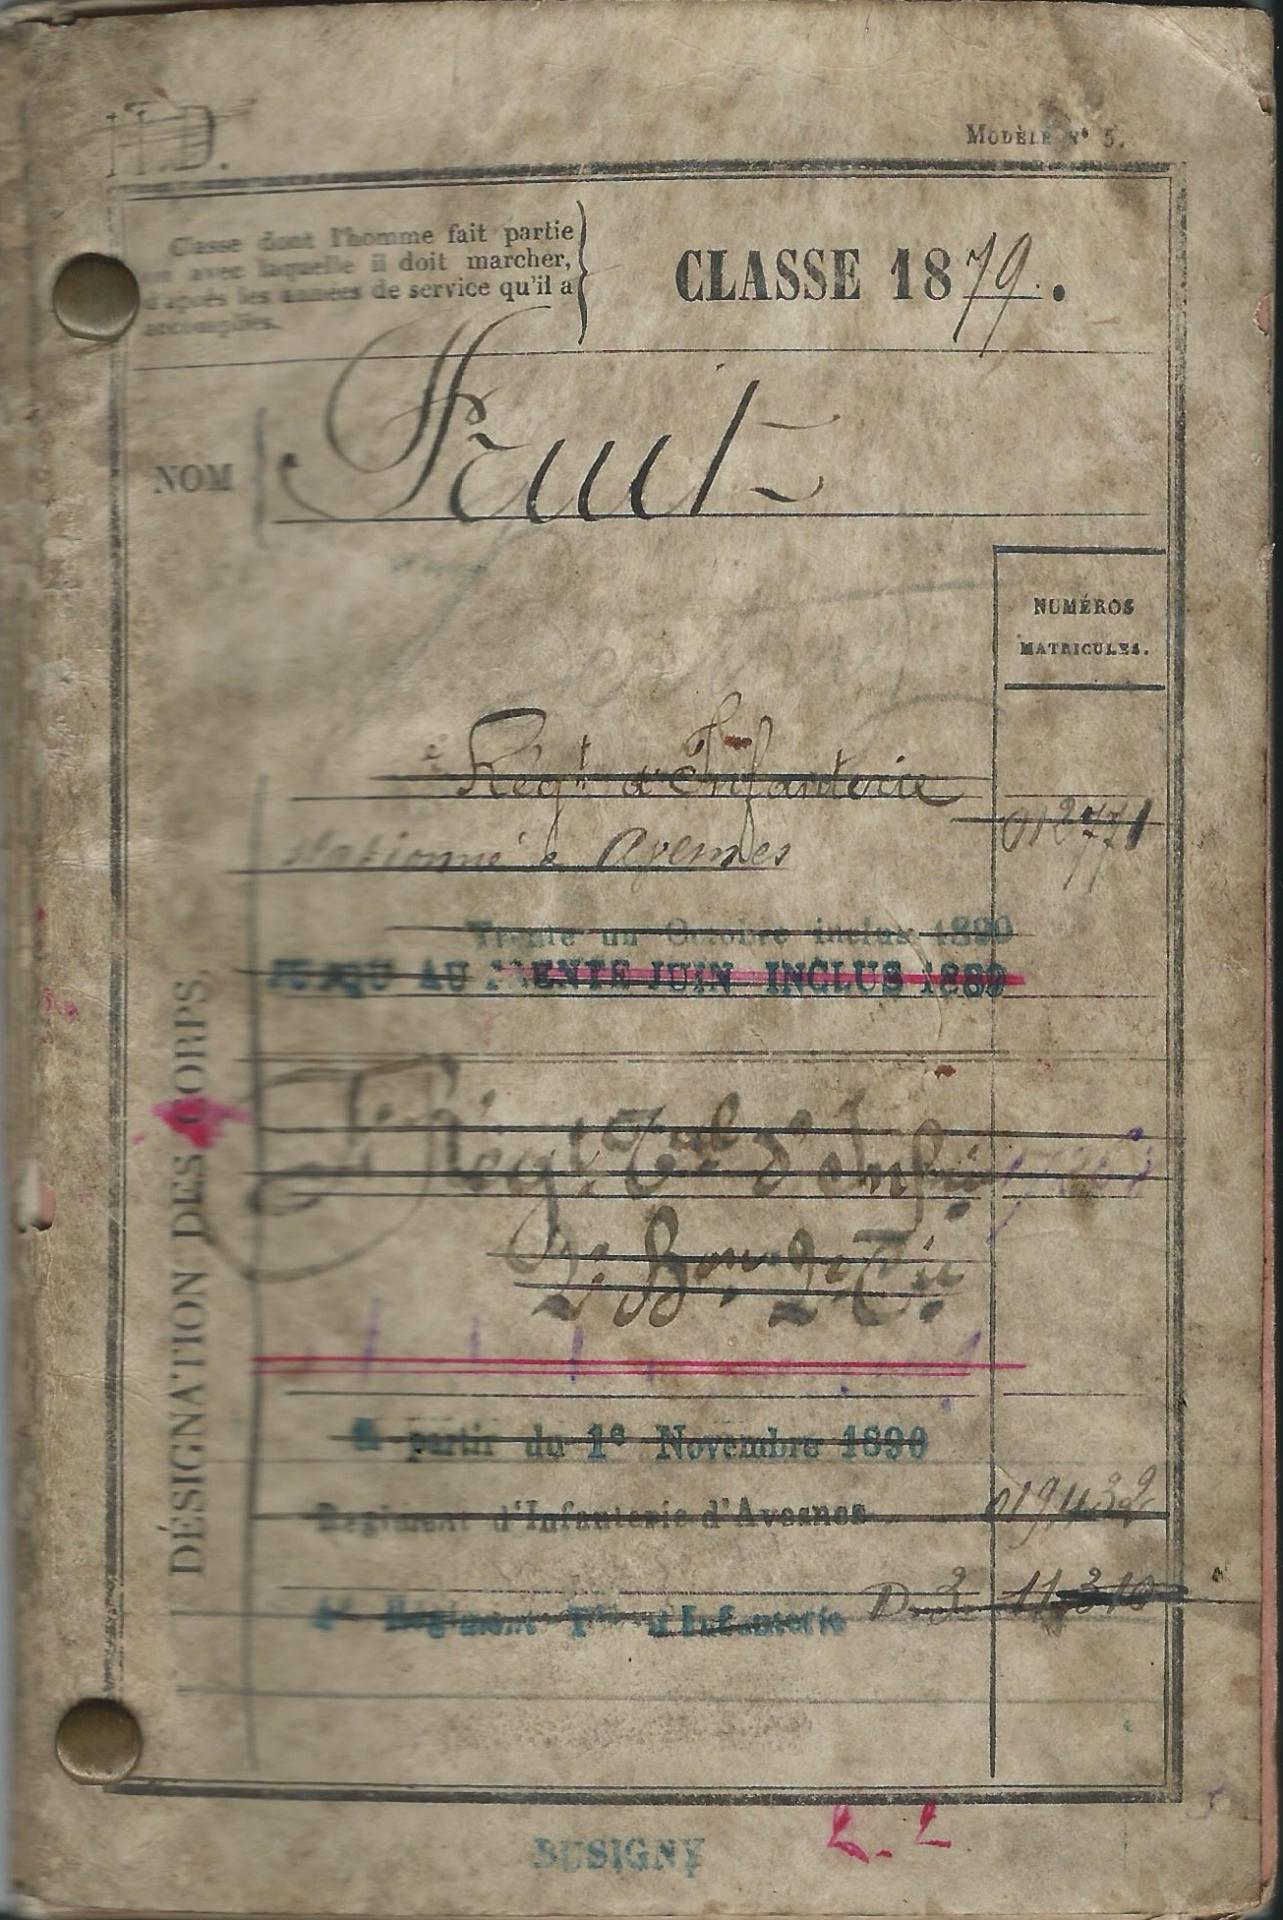 H.D.
MODÈLE N° 5.
Classe dont l'homme fait partie
ou avec laquelle il doit marcher,
d'après les années de service qu'il a
accomplies.
CLASSE 1879.
NOM
Fruit
NUMÉROS
MATRICULES.
DÉSIGNATION DES CORPS.
e Régt d'Infanterie
012771
stationné à Avesnes
Trente un Octobre inclus 1890
JUSQU'AU TRENTE JUIN INCLUS 1889
Régt. Tal d'Infie
2e Bon. 2e Cie
à partir du 1e Novembre 1890
Régiment d'Infanterie d'Avesnes
019432
Régiment Tal d'Infanterie D.3. 11310
BUSIGNY